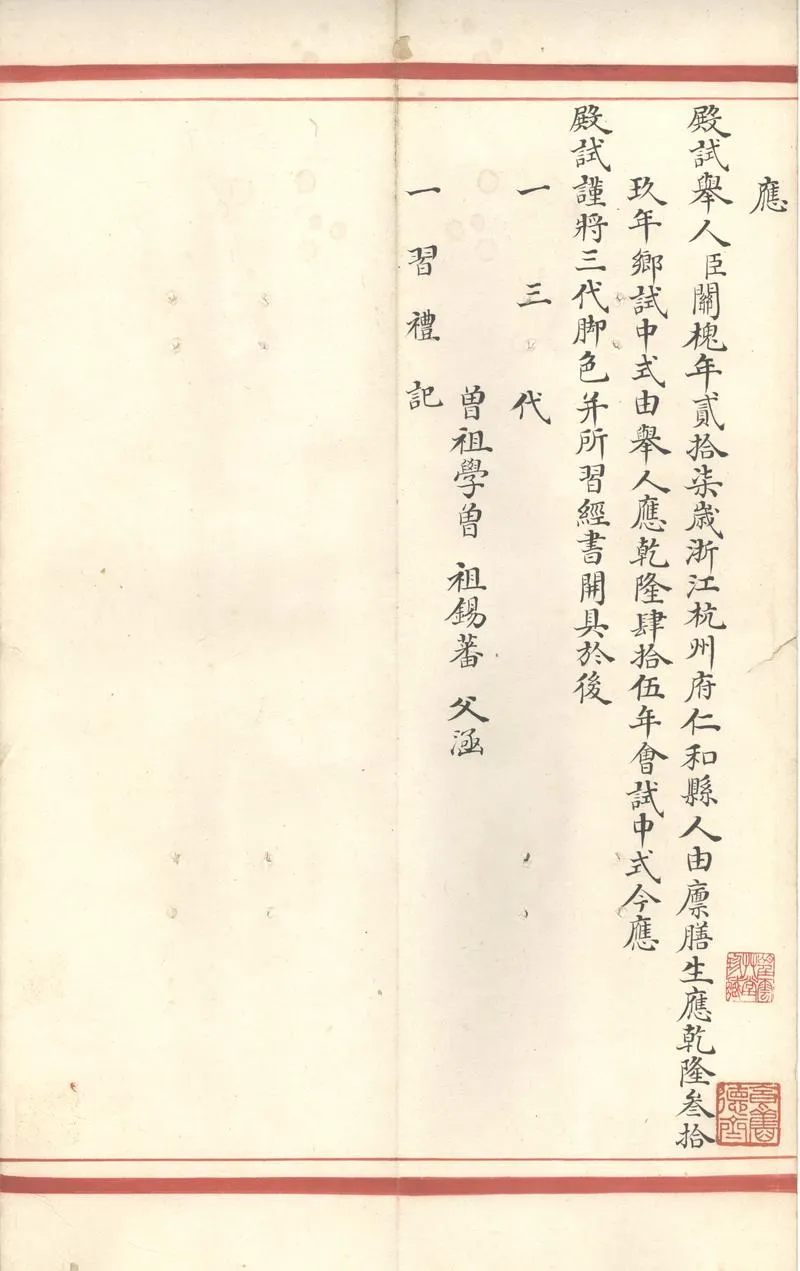 應
殿試舉人臣關槐年貳拾柒歲浙江杭州府仁和縣人由廪膳生應乾隆叁拾
玖年鄉試中式由舉人應乾隆肆拾伍年會試中式今應
殿試謹將三代脚色并所習經書開具於後
一三代
曾祖學曾 祖錫蕃 父涵
一習禮記